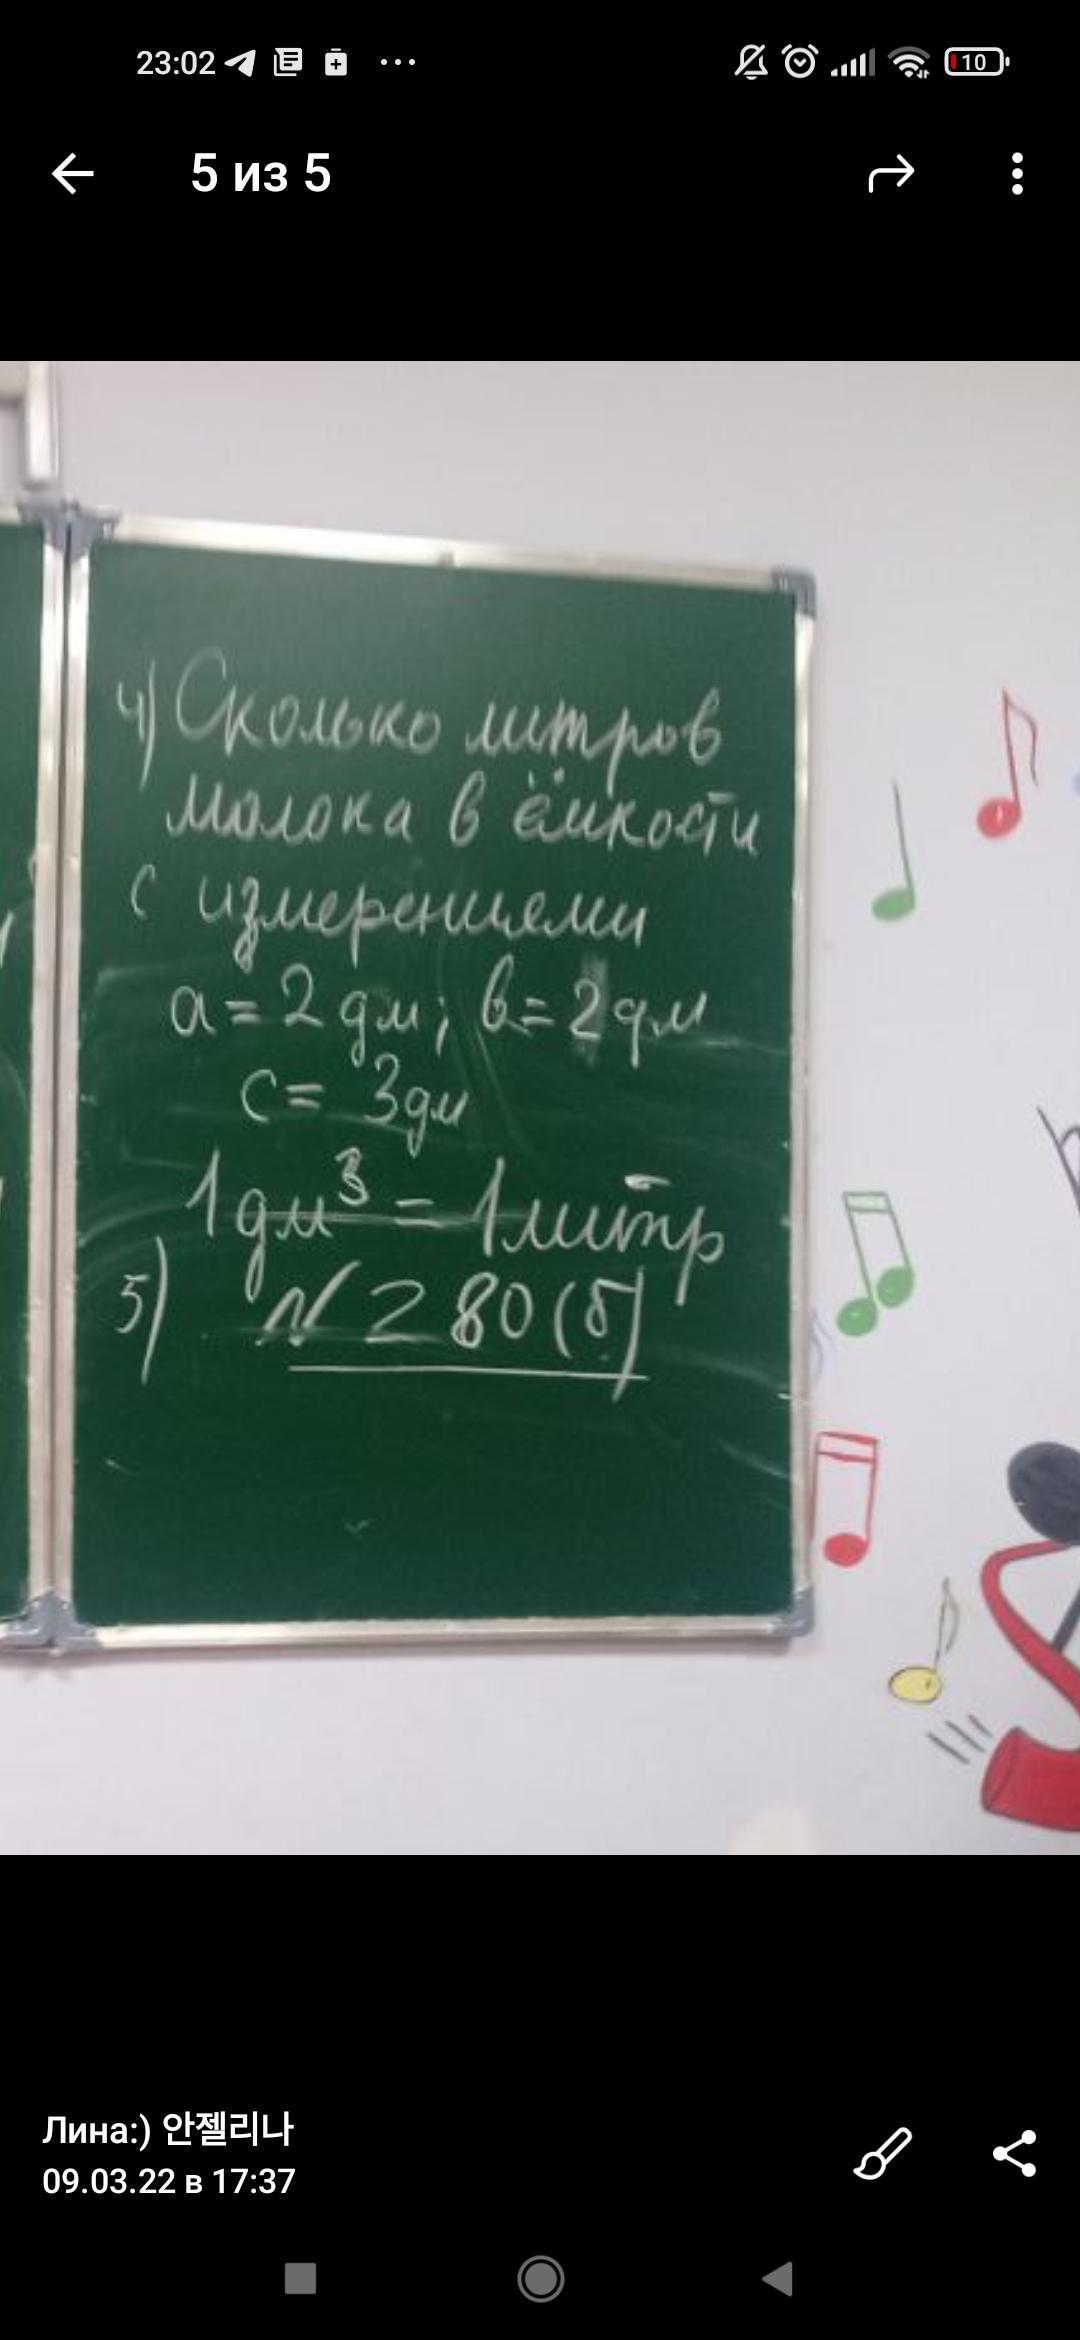 23:02
10
5 из 5
4) Сколько литров
молока в ёмкости
с измерениями
a = 2 дм; b = 2 дм
c = 3 дм
1 дм³ = 1 литр
5) N 280 (б)
Лина:) 안젤리나
09.03.22 в 17:37